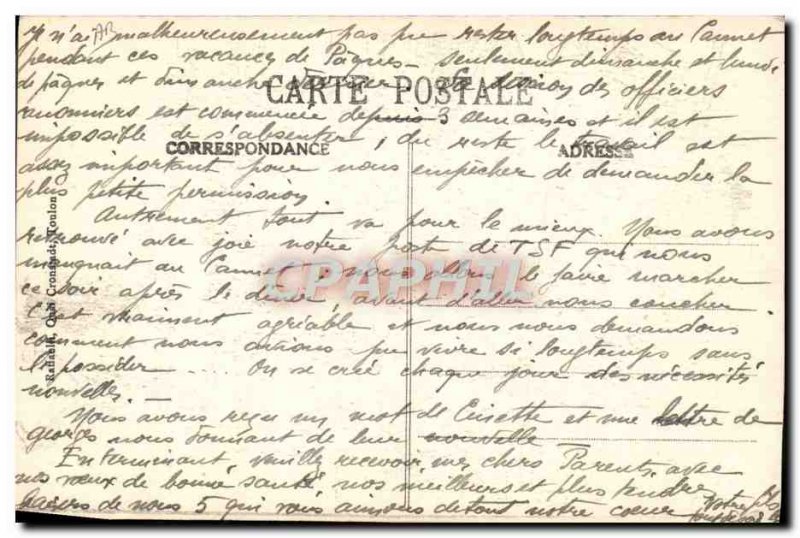 Je n'ai malheureusement pas pu rester longtemps au Cannet
pendant ces vacances de Pâques – seulement dimanche et lundi
de pâques et dimanche des officiers
CARTE POSTALE
canonniers est commencée depuis 3 semaines et il est
impossible de s'absenter, du reste le travail est
CORRESPONDANCE
ADRESSE
assez important pour nous empêcher de demander la
plus petite permission.
Autrement tout va pour le mieux. Nous avons
retrouvé avec joie notre poste de TSF qui nous
manquait au Cannet; nous allons le faire marcher
CPAPHIL
ce soir après le dîner, avant d'aller nous coucher
C'est vraiment agréable et nous nous demandons
comment nous avions pu vivre si longtemps sans
le posséder ... On se crée chaque jour des nécessités
nouvelles. –
Nous avons reçu un mot de et une lettre de
georges nous donnant de leur nouvelle
En terminant veuillez recevoir mes chers Parents, avec
nos vœux de bonne santé nos meilleurs et plus tendre
baisers de nous 5 qui vous aimons de tout notre cœur
Votre
Quai Cronstadt, Toulon